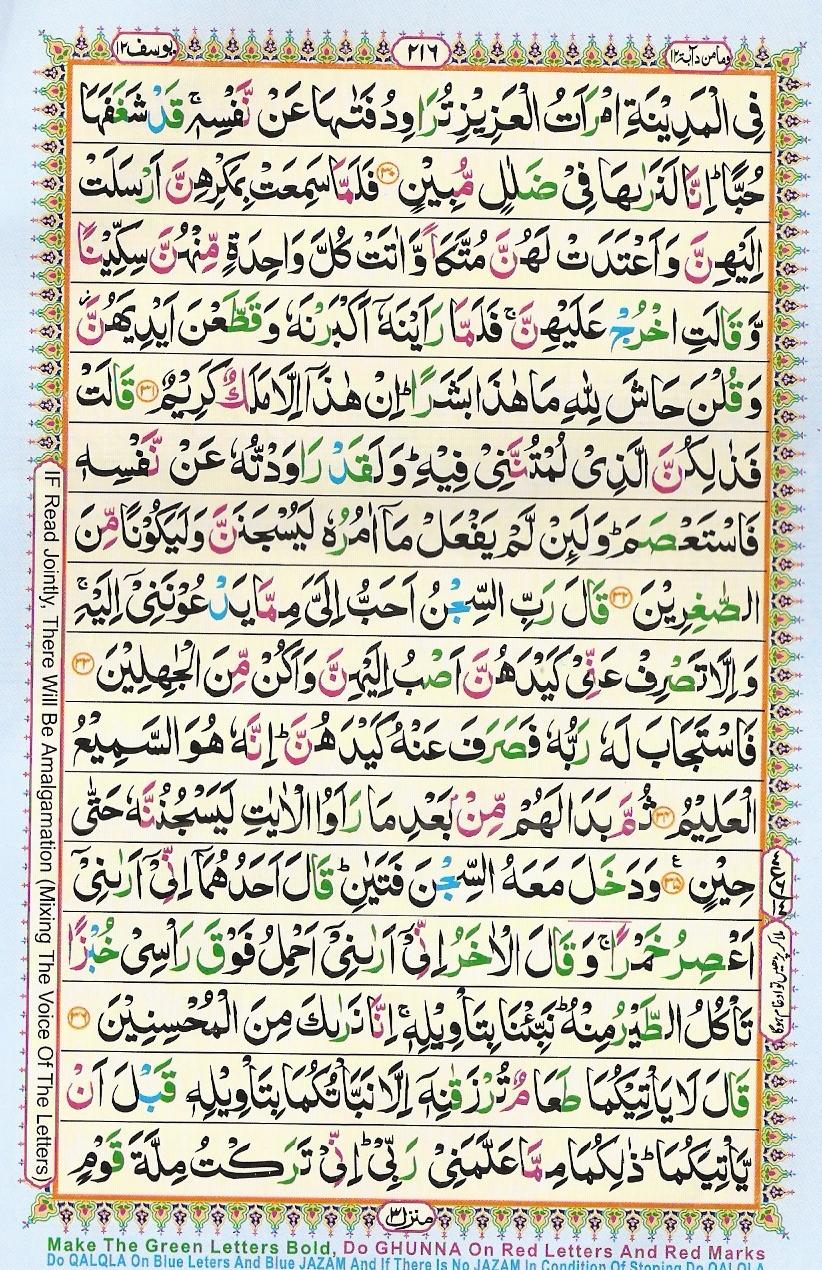 وما من دآبة ١٢
٢١٦
يوسف ١٢
فِی الْمَدِیْنَةِ امْرَاَتُ الْعَزِیْزِ تُرَاوِدُ فَتٰىهَا عَنْ نَّفْسِهٖ ۚ قَدْ شَغَفَهَا
حُبًّا ؕ اِنَّا لَنَرٰىهَا فِیْ ضَلٰلٍ مُّبِیْنٍ ۝۳۰ فَلَمَّا سَمِعَتْ بِمَكْرِهِنَّ اَرْسَلَتْ
اِلَیْهِنَّ وَاَعْتَدَتْ لَهُنَّ مُتَّكَاً وَّاٰتَتْ كُلَّ وَاحِدَةٍ مِّنْهُنَّ سِكِّیْنًا
وَّقَالَتِ اخْرُجْ عَلَیْهِنَّ ۚ فَلَمَّا رَاَیْنَهٗۤ اَكْبَرْنَهٗ وَقَطَّعْنَ اَیْدِیَهُنَّ ؗ
وَقُلْنَ حَاشَ لِلّٰهِ مَا هٰذَا بَشَرًا ؕ اِنْ هٰذَاۤ اِلَّا مَلَكٌ كَرِیْمٌ ۝۳۱ قَالَتْ
فَذٰلِكُنَّ الَّذِیْ لُمْتُنَّنِیْ فِیْهِ ؕ وَلَقَدْ رَاوَدْتُّهٗ عَنْ نَّفْسِهٖ
فَاسْتَعْصَمَ ؕ وَلَىِٕنْ لَّمْ یَفْعَلْ مَاۤ اٰمُرُهٗ لَیُسْجَنَنَّ وَلَیَكُوْنًا مِّنَ
الصّٰغِرِیْنَ ۝۳۲ قَالَ رَبِّ السِّجْنُ اَحَبُّ اِلَیَّ مِمَّا یَدْعُوْنَنِیْۤ اِلَیْهِ ۚ
وَاِلَّا تَصْرِفْ عَنِّیْ كَیْدَهُنَّ اَصْبُ اِلَیْهِنَّ وَاَكُنْ مِّنَ الْجٰهِلِیْنَ ۝۳۳
فَاسْتَجَابَ لَهٗ رَبُّهٗ فَصَرَفَ عَنْهُ كَیْدَهُنَّ ؕ اِنَّهٗ هُوَ السَّمِیْعُ
الْعَلِیْمُ ۝۳۴ ثُمَّ بَدَا لَهُمْ مِّنْۢ بَعْدِ مَا رَاَوُا الْاٰیٰتِ لَیَسْجُنُنَّهٗ حَتّٰی
حِیْنٍ ۝۳۵ ع وَدَخَلَ مَعَهُ السِّجْنَ فَتَیٰنِ ؕ قَالَ اَحَدُهُمَاۤ اِنِّیْۤ اَرٰىنِیْۤ
اَعْصِرُ خَمْرًا ۚ وَقَالَ الْاٰخَرُ اِنِّیْۤ اَرٰىنِیْۤ اَحْمِلُ فَوْقَ رَاْسِیْ خُبْزًا
تَاْكُلُ الطَّیْرُ مِنْهُ ؕ نَبِّئْنَا بِتَاْوِیْلِهٖ ۚ اِنَّا نَرٰىكَ مِنَ الْمُحْسِنِیْنَ ۝۳۶
قَالَ لَا یَاْتِیْكُمَا طَعَامٌ تُرْزَقٰنِهٖۤ اِلَّا نَبَّاْتُكُمَا بِتَاْوِیْلِهٖ قَبْلَ اَنْ
یَّاْتِیَكُمَا ؕ ذٰلِكُمَا مِمَّا عَلَّمَنِیْ رَبِّیْ ؕ اِنِّیْ تَرَكْتُ مِلَّةَ قَوْمٍ
IF Read Jointly, There Will Be Amalgamation (Mixing The Voice Of The Letters)
منزل ٣
Make The Green Letters Bold, Do GHUNNA On Red Letters And Red Marks
Do QALQLA On Blue Leters And Blue JAZAM And If There Is No JAZAM In Condition Of Stoping Do QALQLA